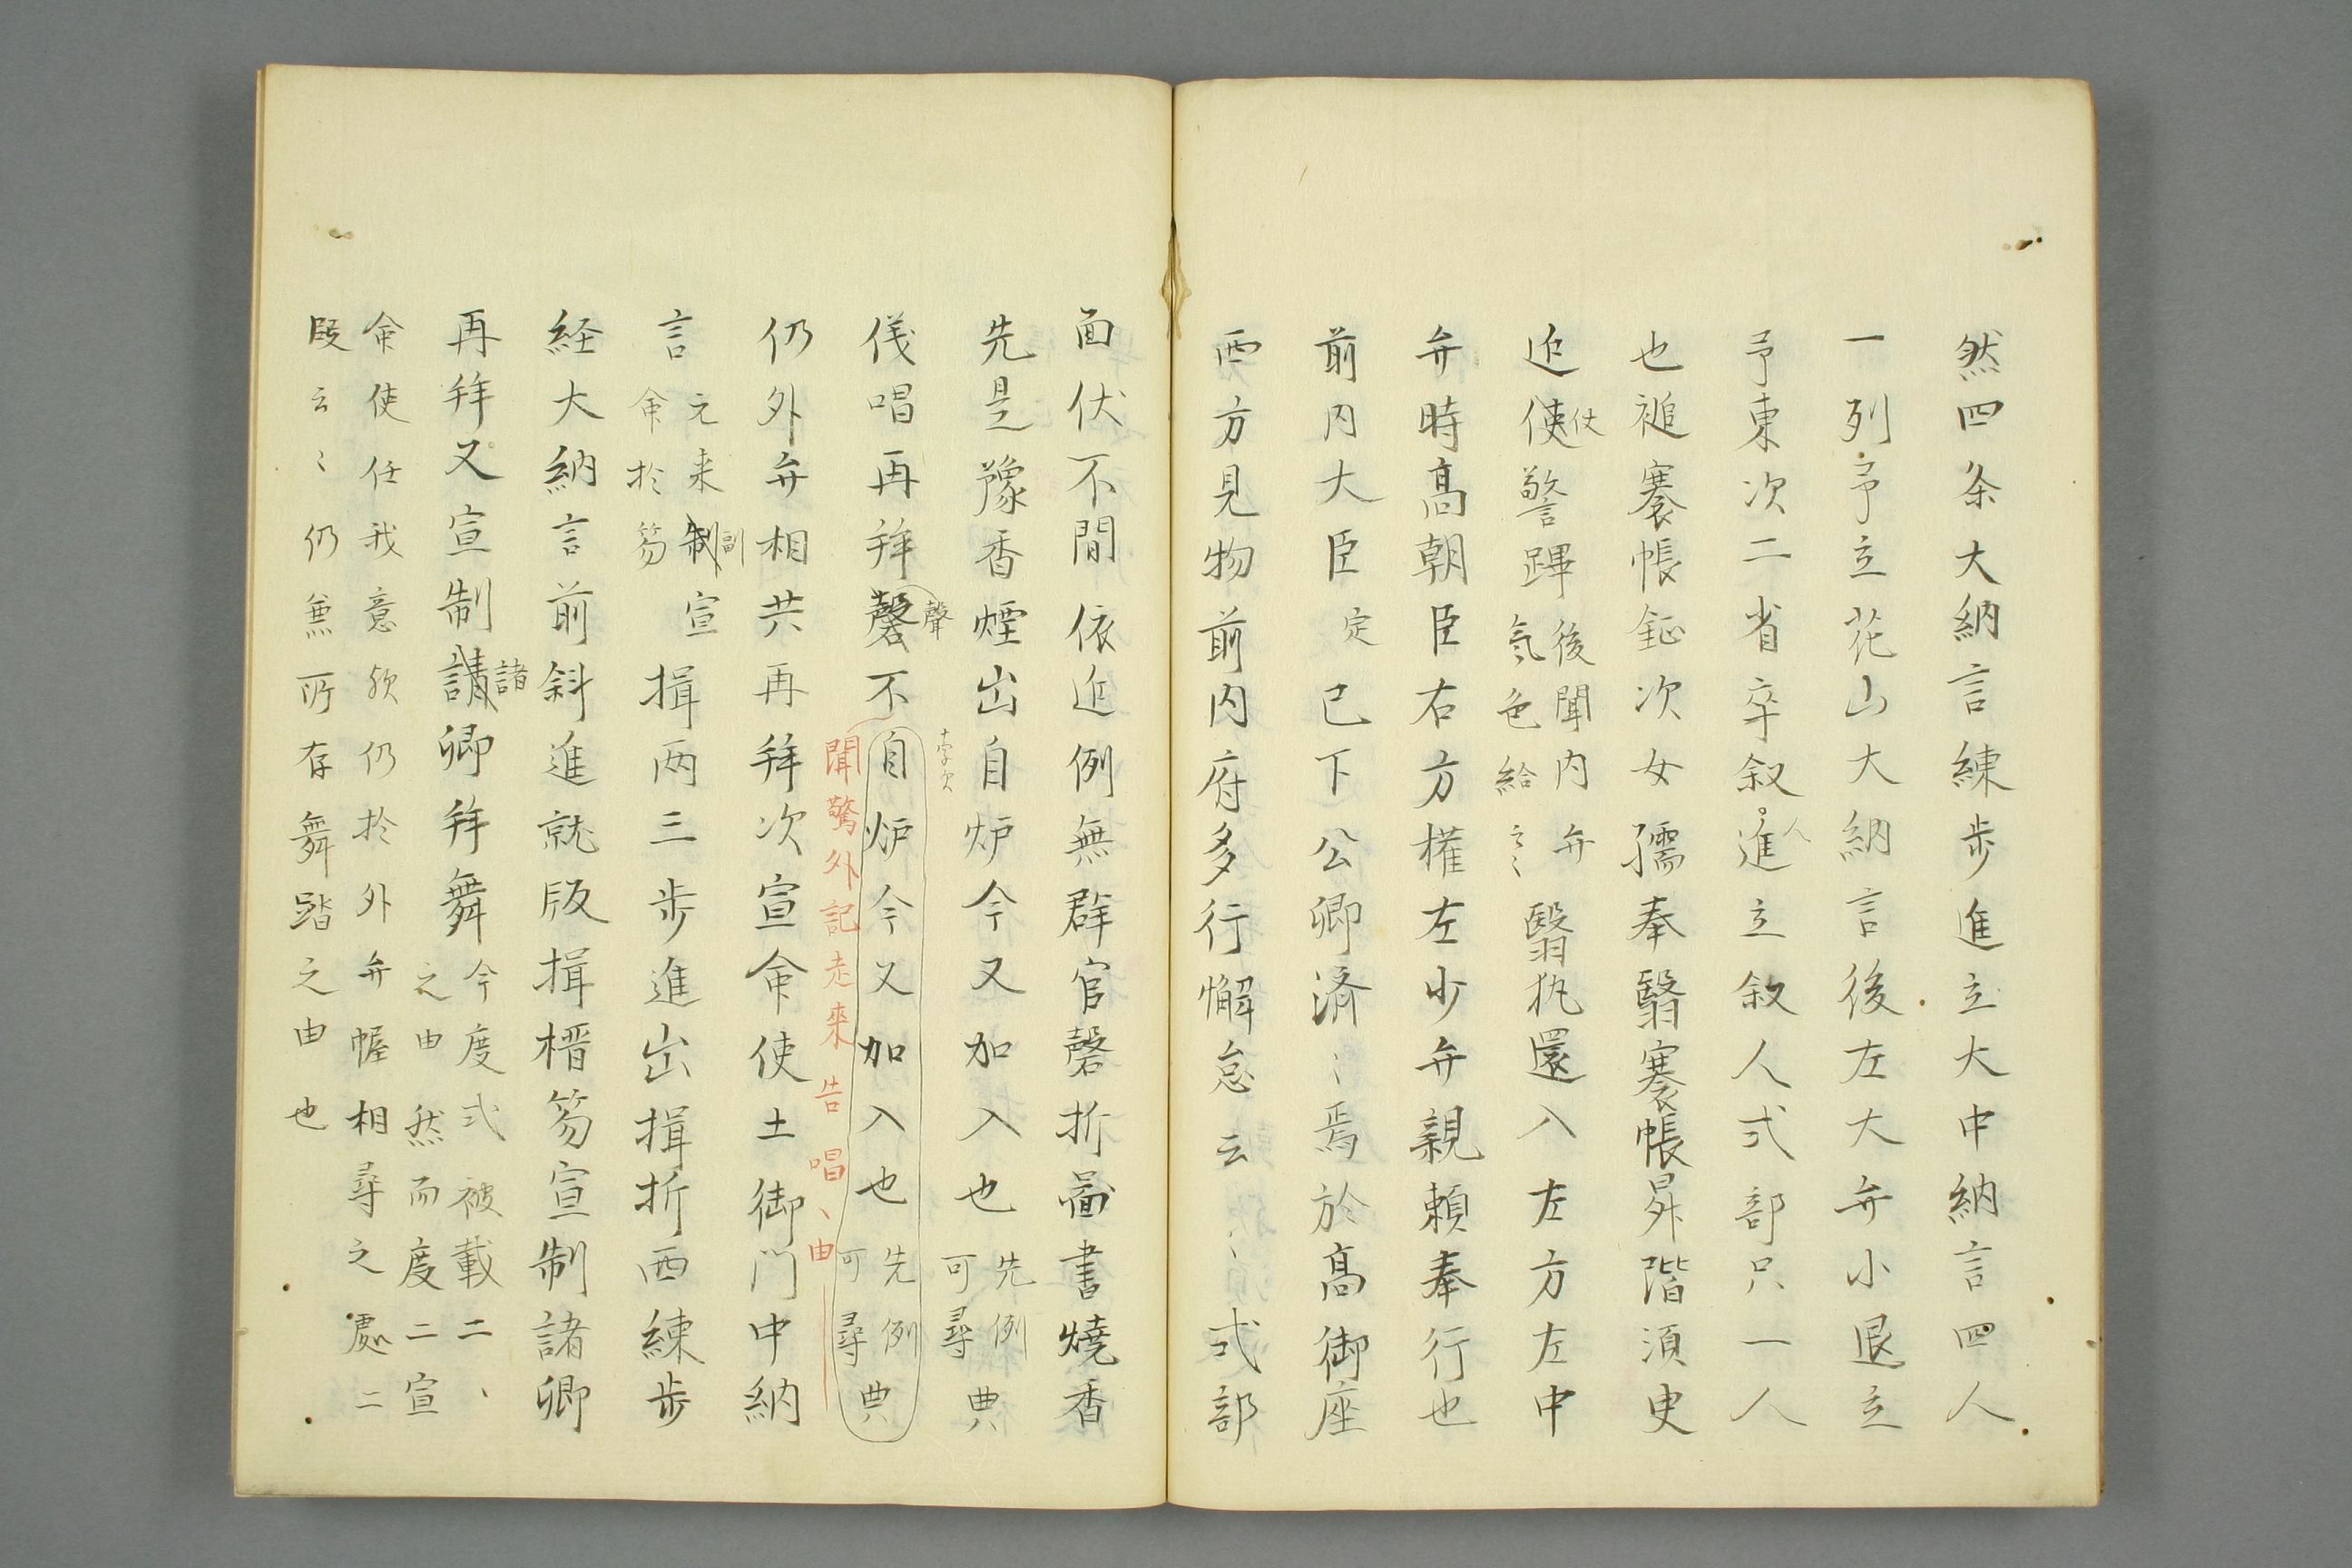 然四条大納言練歩進立大中納言四人
一列予立花山大納言後左大弁小退立
予東次二省卒叙。進立叙人式部只一人
人
也褪褰帳鉦次女孺奉翳褰帳昇階須臾
近使警蹕後聞内弁翳执還入左方左中
仗
気色給云〻
弁時高朝臣右方権左少弁親頼奉行也
前内大臣定已下公卿済〻焉於高御座
西方見物前内府多行懈怠云〻式部
面伏不聞依近例無群官磬折啚書焼香
先是豫香煙出自炉今又加入也先例
可尋典
儀唱再拝磬不自炉今又加入也先例
聲
可尋典
聞驚外記走来告唱、由
仍外弁相共再拝次宣命使土御門中納
言元来制宣揖両三歩進出揖折西練歩
副
命於笏
経大納言前斜進就版揖搢笏宣制諸卿
再拝又宣制請卿拝舞今度式被載二、
諸
之由然而度二宣
命使任我意歟仍於外弁幄相尋之處二
段云〻仍無所存舞踏之由也